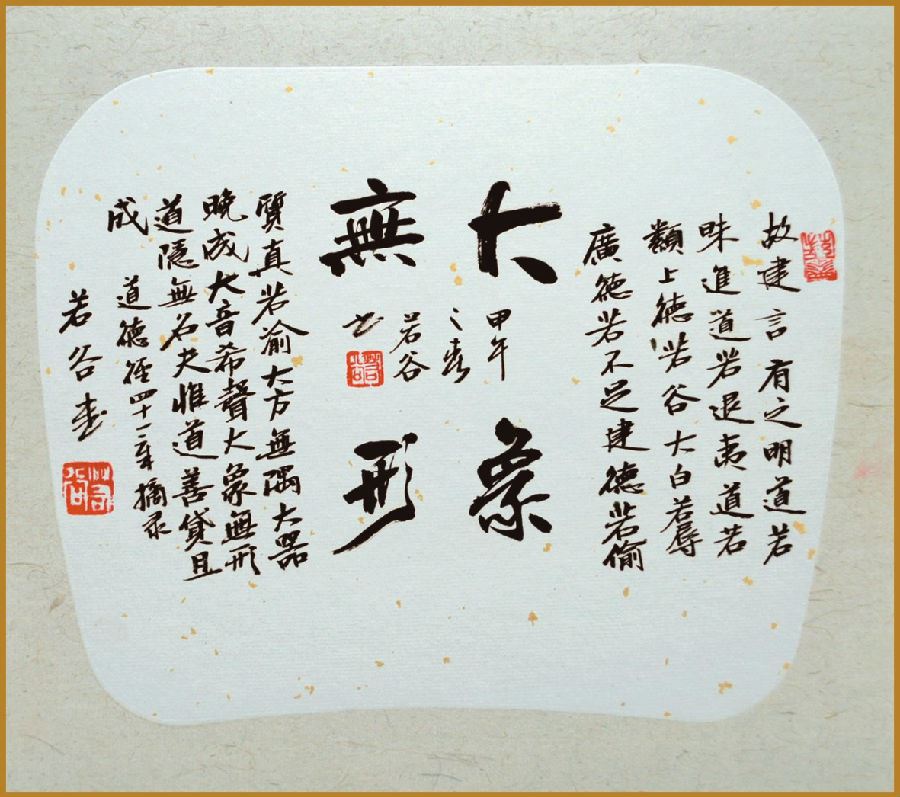 故建言有之明道若
昧進道若退夷道若
類上德若谷大白若辱
廣德若不足建德若偷
大象
無形
甲午
之春
若谷
书
若谷
質真若渝大方無隅大器
晚成大音希聲大象無形
道隱無名夫惟道善貸且
成 道德經四十一章摘录
若谷書
若谷